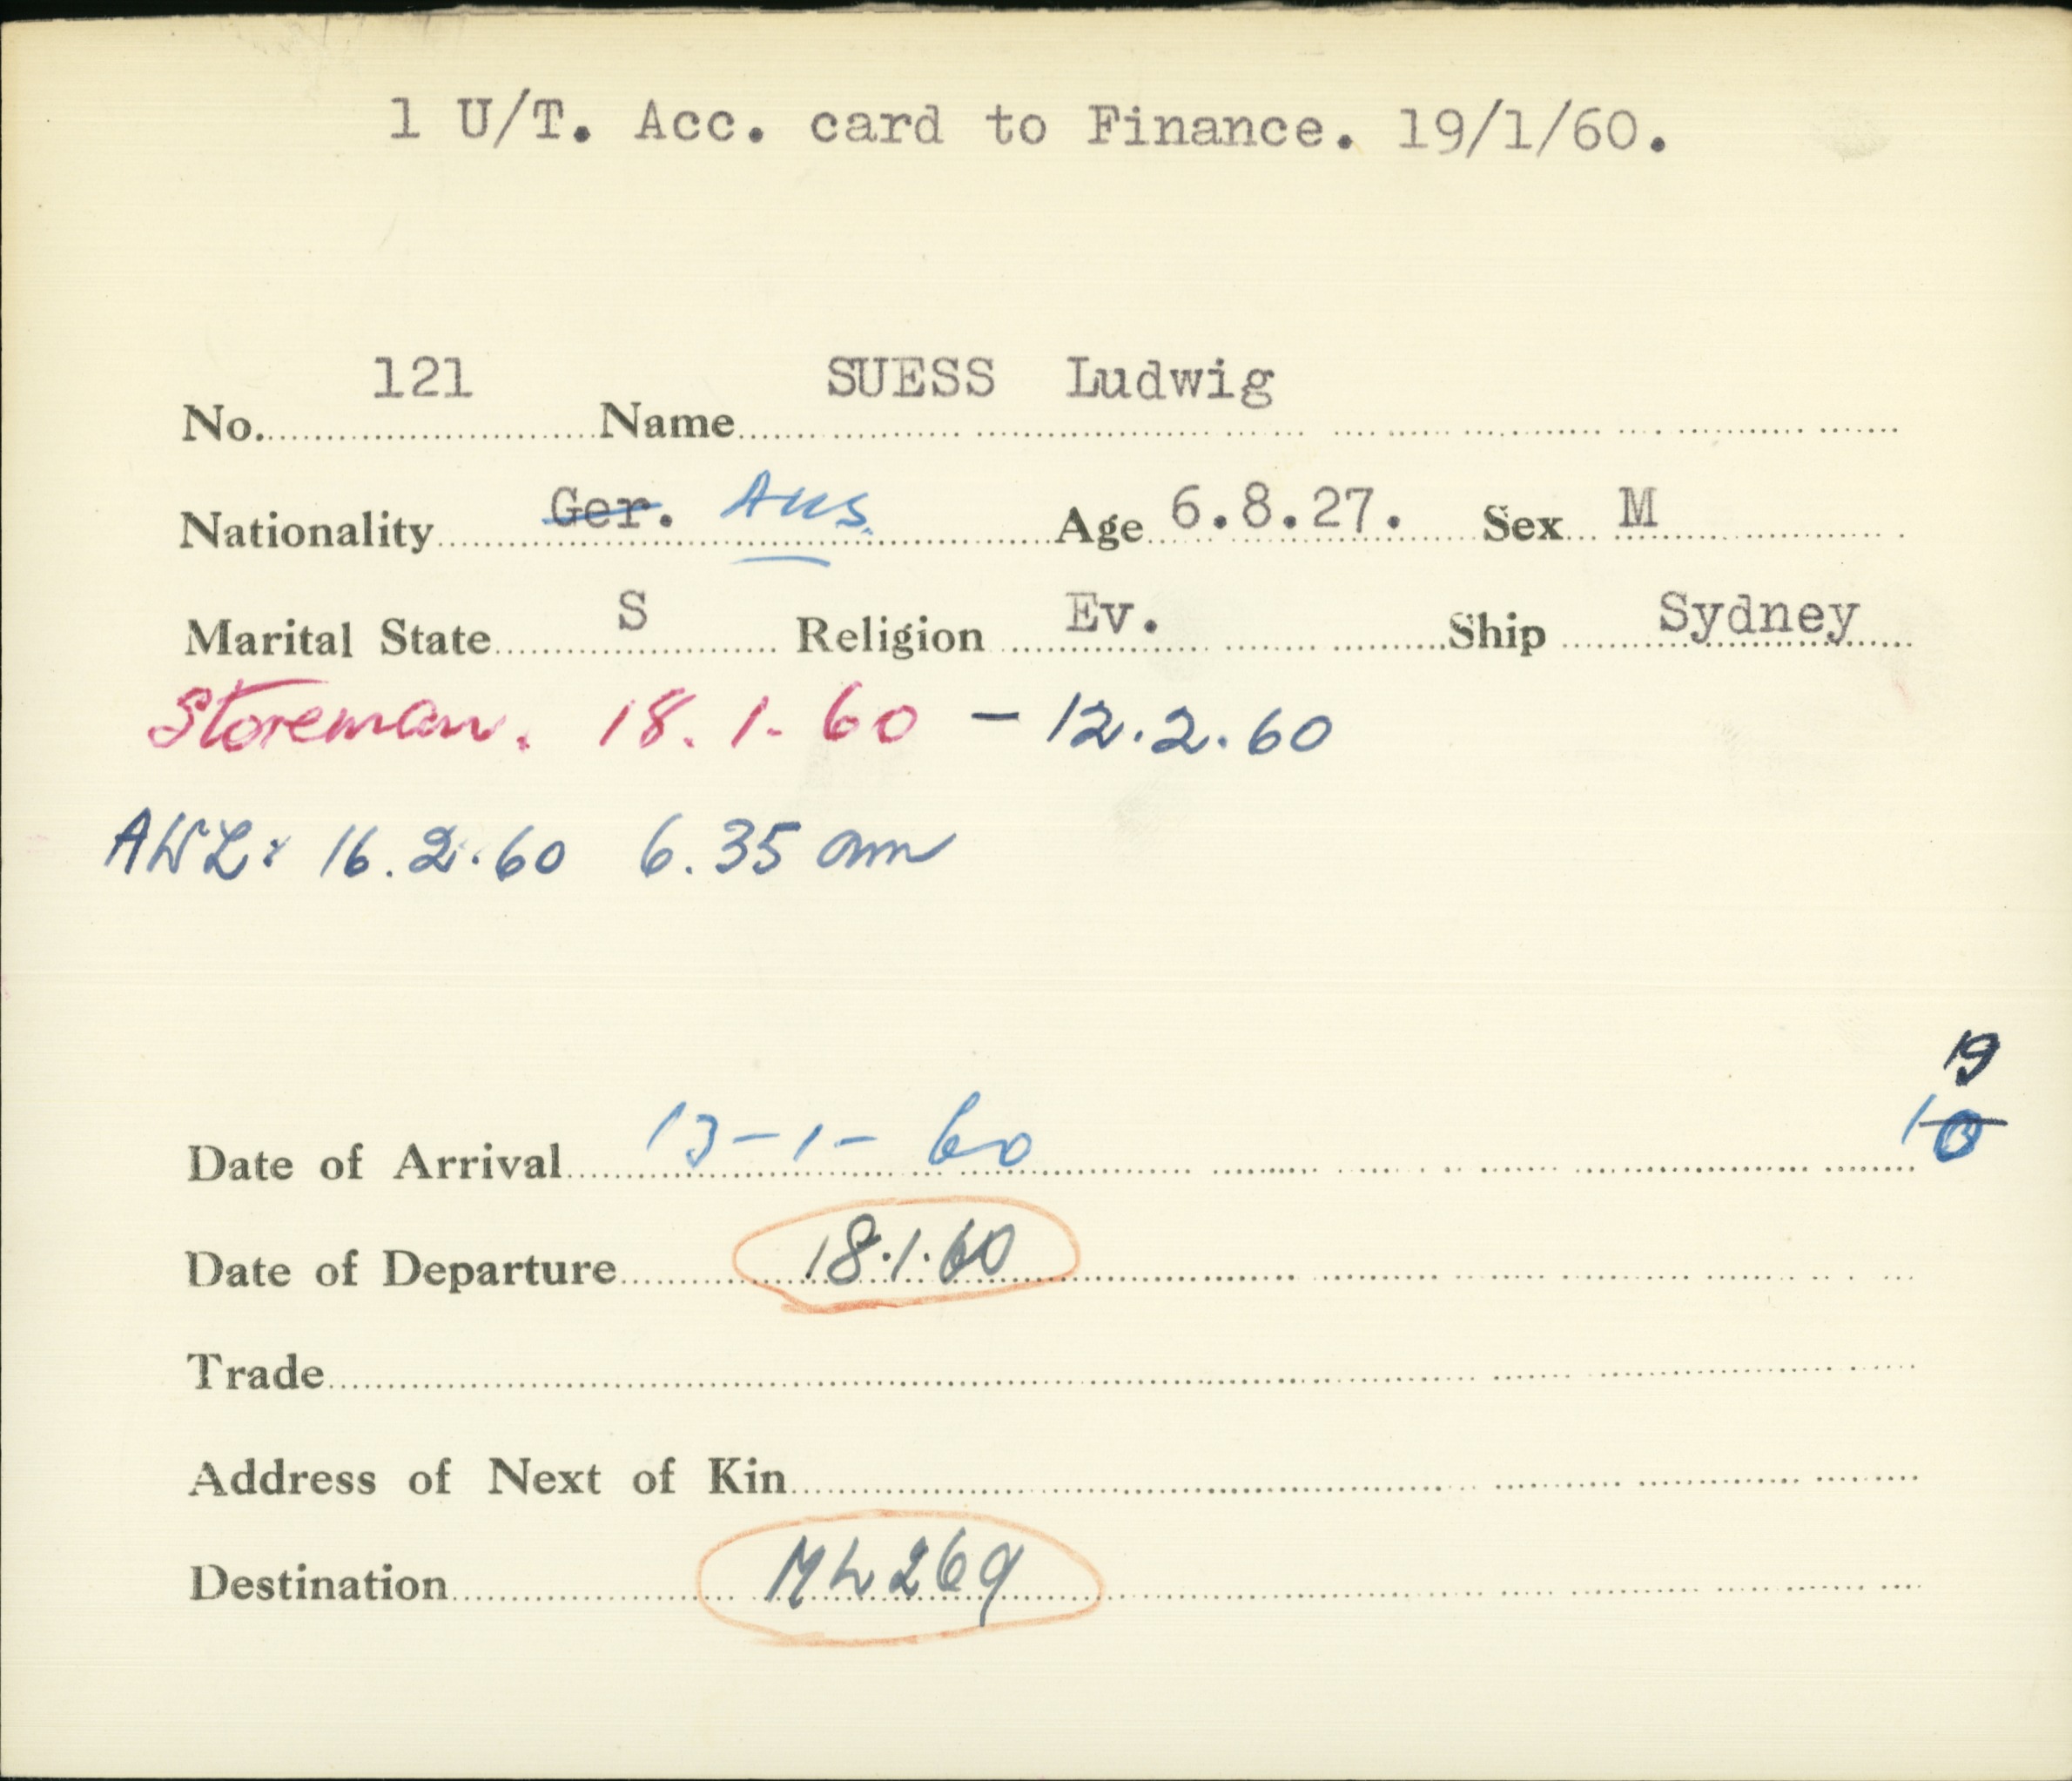 1 U/T. Acc. card to Finance. 19/1/60.
No. 121 Name SUESS Ludwig
Nationality Ger. Aus. Age 6.8.27. Sex M
Marital State S Religion Ev. Ship Sydney
Storeman. 18.1.60 – 12.2.60
AWL: 16.2.60 6.35 am
19
Date of Arrival 13-1-60
Date of Departure 18.1.60
Trade
Address of Next of Kin
Destination